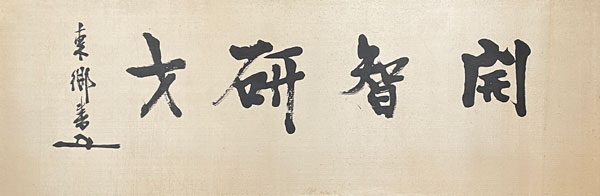 開智研才
東郷書